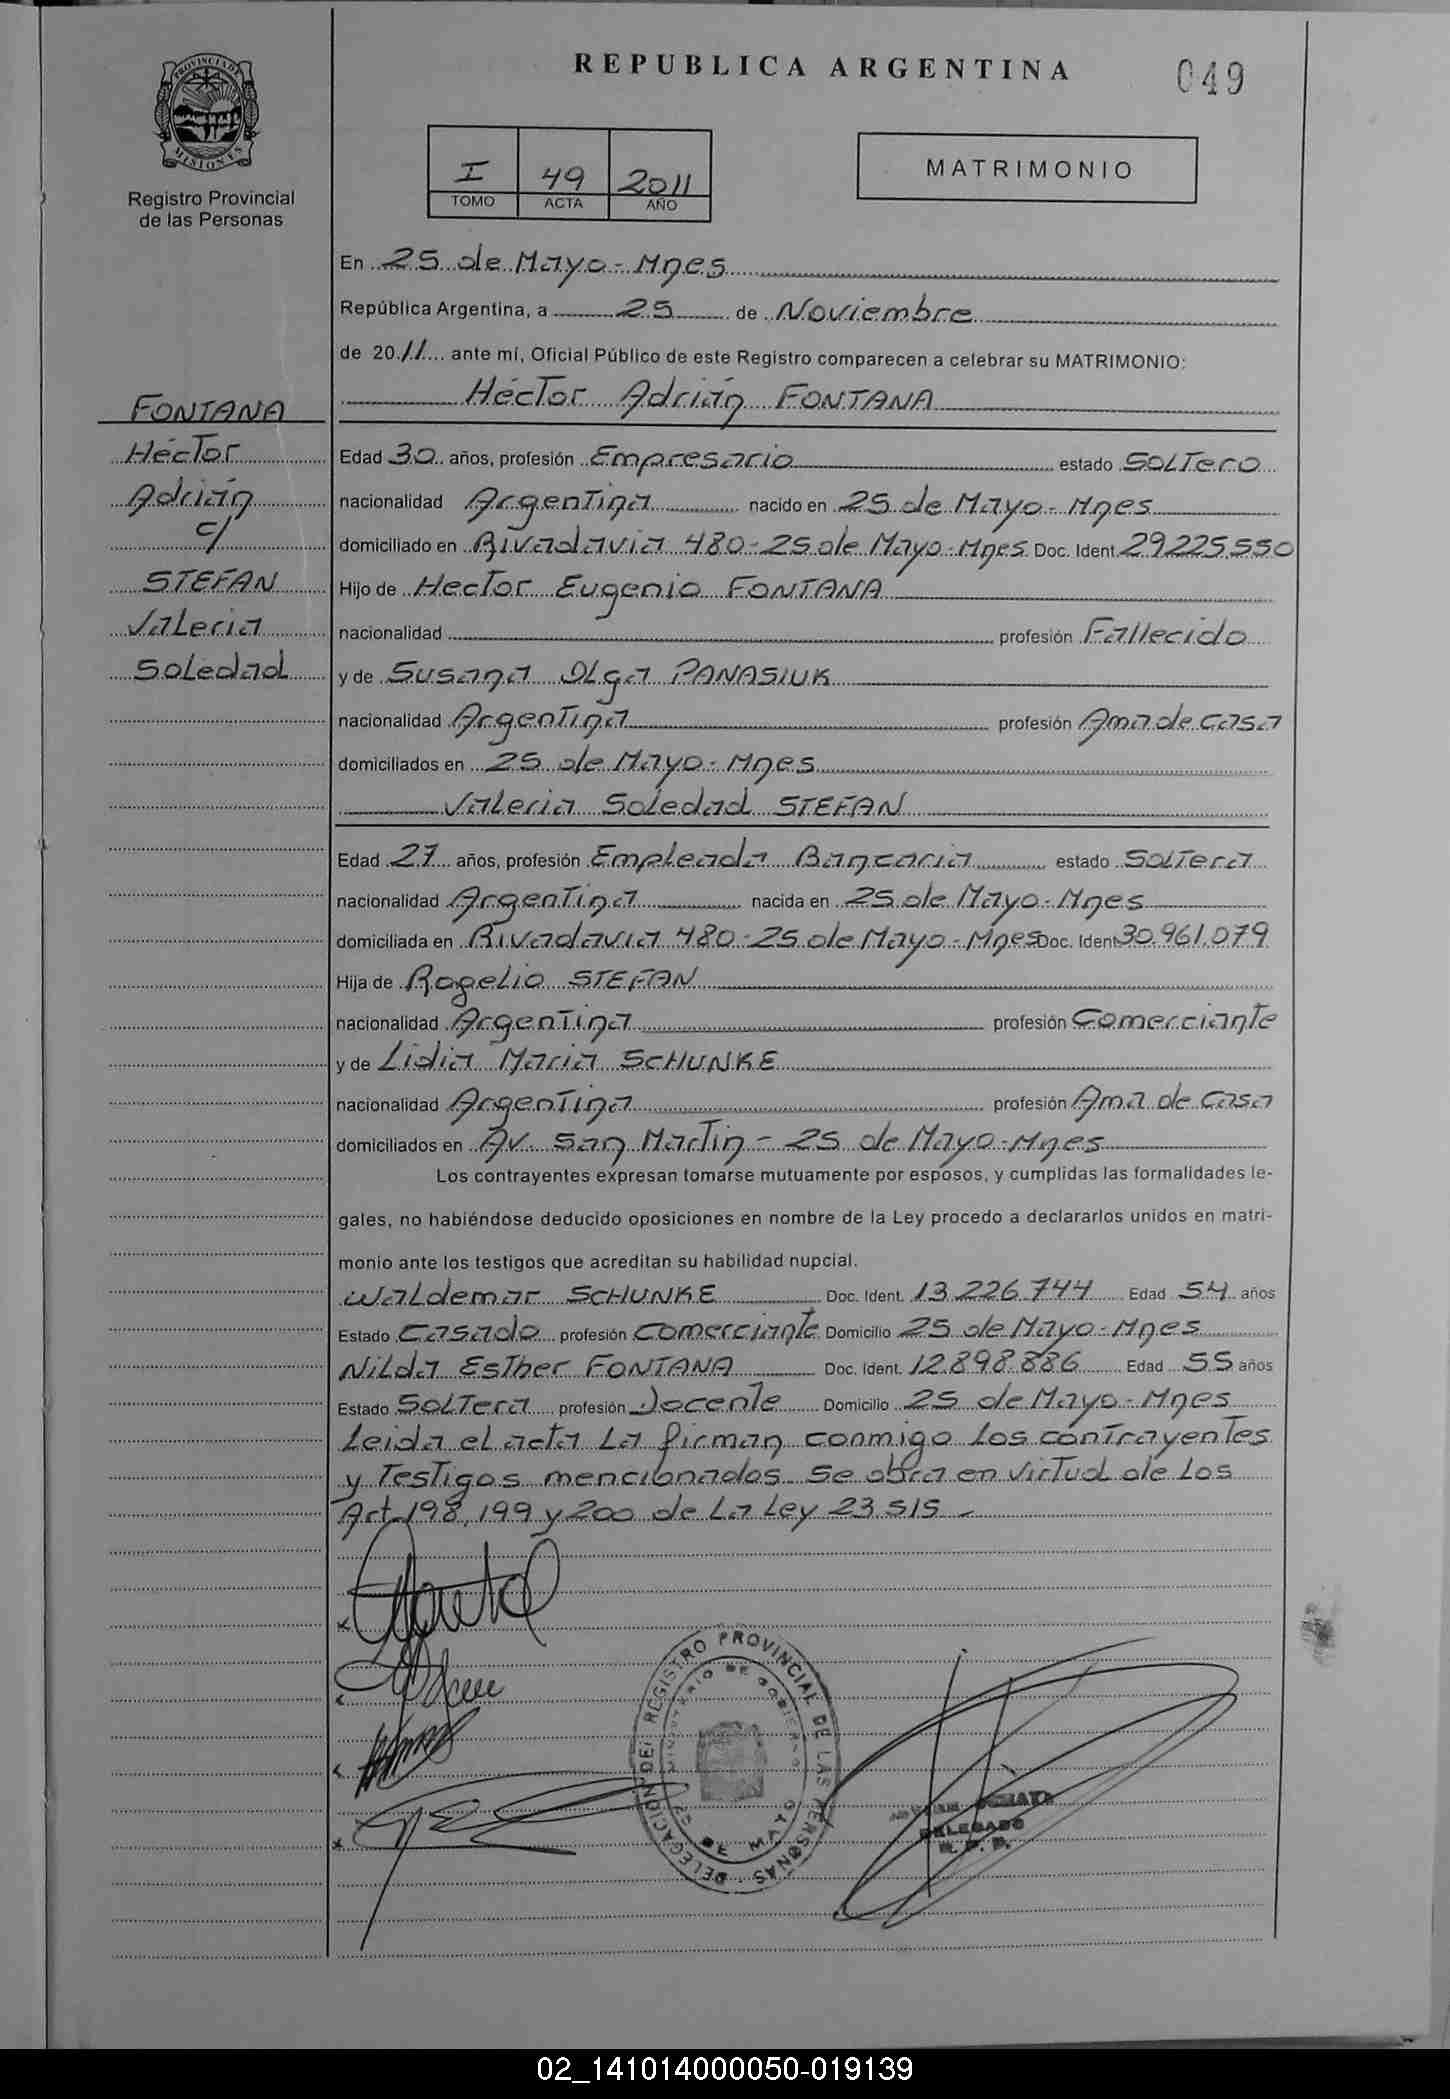 REPUBLICA ARGENTINA
049
PROVINCIA DE MISIONES
Registro Provincial
de las Personas
I 49 2011
TOMO ACTA AÑO
MATRIMONIO
En 25 de Mayo - Mnes
República Argentina, a 25 de Noviembre
de 2011 ante mí, Oficial Público de este Registro comparecen a celebrar su MATRIMONIO:
Héctor Adrián FONTANA
FONTANA
Héctor
Adrián
c/
STEFAN
Valeria
Soledad
Edad 30 años, profesión Empresario estado Soltero
nacionalidad Argentina nacido en 25 de Mayo - Mnes
domiciliado en Rivadavia 480 - 25 de Mayo - Mnes Doc. Ident. 29.225.550
Hijo de Hector Eugenio FONTANA
nacionalidad profesión Fallecido
y de Susana Olga PANASIUK
nacionalidad Argentina profesión Ama de casa
domiciliados en 25 de Mayo - Mnes
Valeria Soledad STEFAN
Edad 27 años, profesión Empleada Bancaria estado Soltera
nacionalidad Argentina nacida en 25 de Mayo - Mnes
domiciliada en Rivadavia 480 - 25 de Mayo - Mnes Doc. Ident. 30.961.079
Hija de Rogelio STEFAN
nacionalidad Argentina profesión Comerciante
y de Lidia Maria SCHUNKE
nacionalidad Argentina profesión Ama de casa
domiciliados en Av. San Martin - 25 de Mayo - Mnes
Los contrayentes expresan tomarse mutuamente por esposos, y cumplidas las formalidades le-
gales, no habiéndose deducido oposiciones en nombre de la Ley procedo a declararlos unidos en matri-
monio ante los testigos que acreditan su habilidad nupcial.
Waldemar SCHUNKE Doc. Ident. 13.226.744 Edad 54 años
Estado Casado profesión Comerciante Domicilio 25 de Mayo - Mnes
Nilda Esther FONTANA Doc. Ident. 12.898.886 Edad 55 años
Estado Soltera profesión Docente Domicilio 25 de Mayo - Mnes
Leida el acta la firman conmigo los contrayentes
y Testigos mencionados. Se obra en virtud de los
Art. 198, 199 y 200 de la Ley 23.515 -
DELEGACION DEL REGISTRO PROVINCIAL DE LAS PERSONAS
MINISTERIO DE GOBIERNO
25 DE MAYO
DELEGADO
R. P. P.
02_141014000050-019139